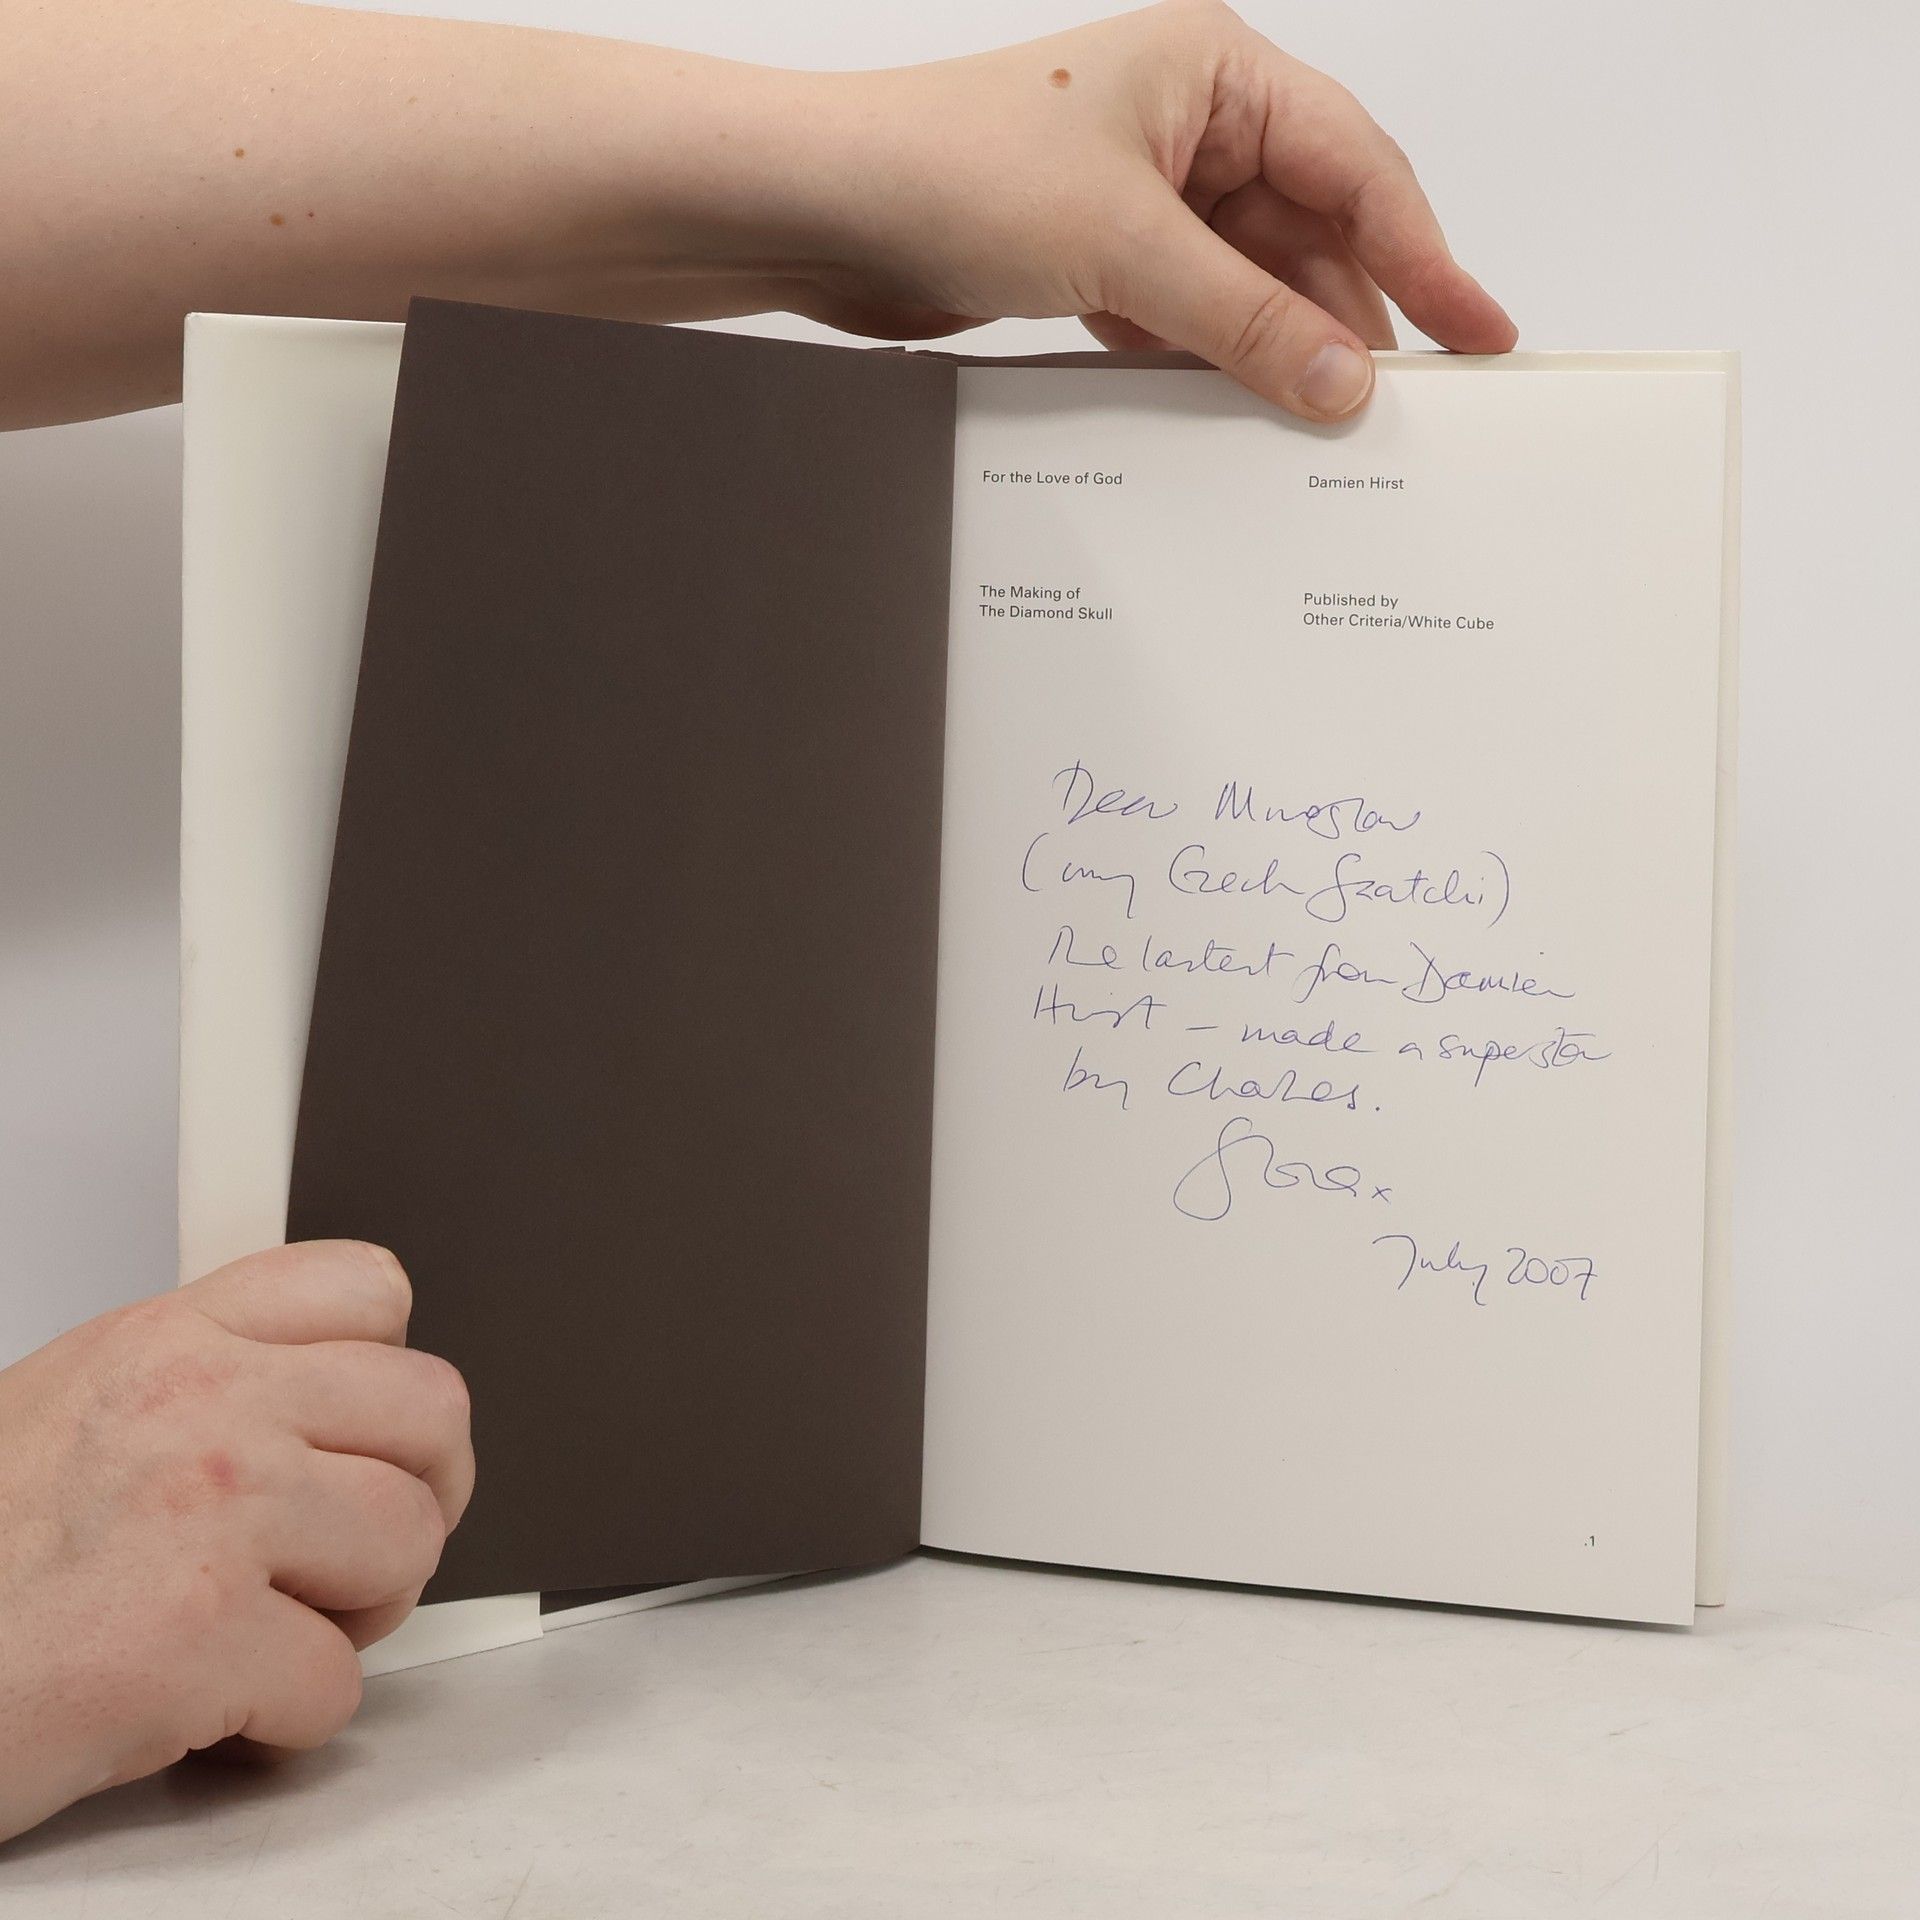 For the Love of God
Damien Hirst
The Making of
The Diamond Skull
Published by
Other Criteria/White Cube
Dear Miroslav
(my Czech Szatchi)
The lastest from Damien
Hirst – made a superstar
by Charles.
x
July 2007
.1